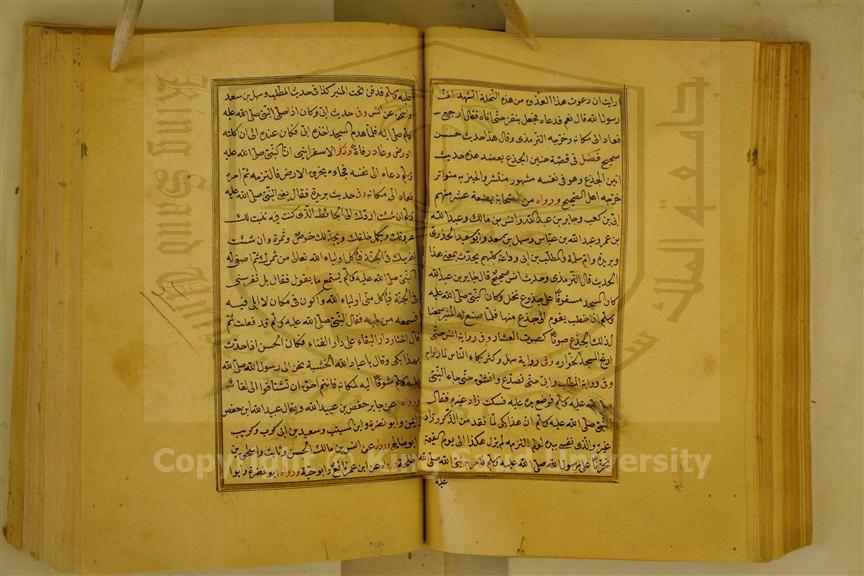 ارايت ان دعوت هذا العذق من هذه النخلة اتشهد انى
رسول الله قال نعم فدعاه فجعل ينقز حتى اتاه فقال ارجع
فعاد الى مكانه وخرجه الترمذى وقال هذا حديث حسن
صحيح فصل فى قصة حنين الجذع يعضد هذه حديث
انين الجذع وهو فى نفسه مشهور منتشر والخبر به متواتر
خرجه اهل الصحيح ورواه من الصحابة بضعة عشر منهم
ابى بن كعب وجابر بن عبد الله وانس بن مالك وعبد الله
بن عمر وعبد الله بن عباس وسهل بن سعد وابو سعيد الخدرى
وبريدة وام سلمة والمطلب بن ابى وداعة كلهم يحدث بمعنى هذا
الحديث قال الترمذى وحديث انس صحيح قال جابر بن عبد الله
كان المسجد مسقوفا على جذوع نخل وكان النبى صلى الله عليه
وسلم اذا خطب يقوم الى جذع منها فلما صنع له المنبر سمعنا
لذلك الجذع صوتا كصوت العشار وفى رواية انس حتى
ارتج المسجد لخواره وفى رواية سهل وكثر بكاء الناس لما راوا به
وفى رواية المطلب وابى حتى تصدع وانشق حتى جاء النبى
صلى الله عليه وسلم فوضع يده عليه فسكت زاد غيره فقال
النبى صلى الله عليه وسلم ان هذا بكى لما فقد من الذكر وزاد
غيره والذى نفسى بيده لو لم التزمه لم يزل هكذا الى يوم القيمة
تحزنا على رسول الله صلى الله عليه وسلم فامر به نبى الله صلى الله
عليه
عليه وسلم فدفن تحت المنبر كذا فى حديث المطلب وسهل بن سعد
واسحق عن انس وفى حديث ابى وكان اذا صلى النبى صلى الله عليه
وسلم صلى اليه فلما هدم المسجد اخذه ابى فكان عنده الى ان اكلته
الارض وعاد رفاتا وذكر الاسفراينى ان النبى صلى الله عليه
وسلم دعاه الى نفسه فجاءه يخرق الارض فالتزمه ثم امره
فعاد الى مكانه وفى حديث بريدة فقال يعنى النبى صلى الله عليه
وسلم ان شئت اردك الى الحائط الذى كنت فيه تنبت لك
عروقك ويكمل خلقك ويجدد لك خوص وثمرة وان شئت
اغرسك فى الجنة فياكل اولياء الله تعالى من ثمرك ثم اصغى له
النبى صلى الله عليه وسلم يستمع ما يقول فقال بل تغرسنى
فى الجنة فياكل منى اولياء الله واكون فى مكان لا ابلى فيه
فسمعه من يليه فقال النبى صلى الله عليه وسلم قد فعلت ثم
قال اختار دار البقاء على دار الفناء فكان الحسن اذا حدث
بهذا بكى وقال يا عباد الله الخشبة تحن الى رسول الله صلى الله
عليه وسلم شوقا اليه لمكانه فانتم احق ان تشتاقوا الى لقائه
ورواه عن جابر حفص بن عبيد الله ويقال عبيد الله ابن حفص
وايمن وابو نضرة وابن المسيب وسعيد بن ابى كرب وكريب
وابو صالح ورواه عن انس بن مالك الحسن وثابت واسحق بن
طلحة ورواه عن ابن عمر نافع وابو حية ورواه ابو نضرة وابو
جامعة الملك سعود
King Saud University
Copyright © King Saud University